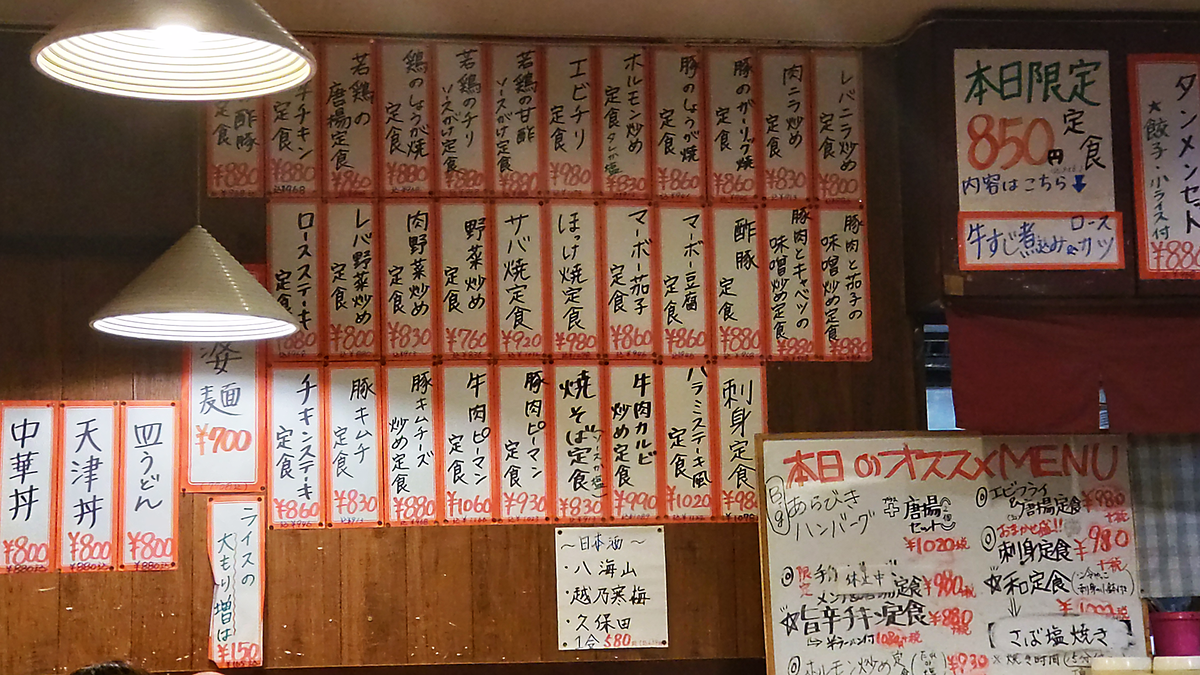 レバニラ炒め
定食
¥800
肉ニラ炒め
定食
¥830
豚のガーリック焼
定食
¥860
豚のしょうが焼
定食
¥860
ホルモン炒め
定食 タレか塩
¥830
エビチリ
定食
¥980
若鶏の甘酢
ソースがけ定食
¥880
若鶏のチリ
ソースがけ定食
¥880
鶏のしょうが焼
定食
¥880
若鶏の
唐揚定食
¥860
チキン
定食
¥880
酢豚
定食
¥880
豚肉と茄子の
味噌炒め定食
¥880
豚肉とキャベツの
味噌炒め定食
¥880
酢豚
定食
¥880
マーボー豆腐
定食
¥860
マーボー茄子
定食
¥860
ほっけ焼定食
¥980
サバ焼定食
¥920
野菜炒め
定食
¥760
肉野菜炒め
定食
¥830
レバ野菜炒め
定食
¥800
ロースステーキ
定食
刺身定食
¥98
ハラミステーキ風
定食
¥1020
牛肉カルビ
炒め定食
¥990
焼そば定食
(ソースか塩)
¥830
豚肉ピーマン
定食
¥930
牛肉ピーマン
定食
¥1060
豚キムチーズ
炒め定食
¥880
豚キムチ
定食
¥830
チキンステーキ
定食
¥860
婆
麺
¥700
皿うどん
¥800
天津丼
¥800
中華丼
¥800
ライスの
大もり増は
¥150
~日本酒~
・八海山
・越乃寒梅
・久保田
1合 580
本日限定
850円 定食
内容はこちら↓
牛すじ煮込み&ロースカツ
タンメンセット
★餃子・小ライス付
¥880
本日のオススメMENU
Big あらびき
ハンバーグ
唐揚
セット
¥1020+税
限定
休止中
定食 ¥980+税
旨辛チキン定食 ¥880+税
→半ラーメン付
ホルモン炒め定食
¥930
エビフライ
&唐揚定食 ¥980+税
おまかせ盛!!
刺身定食 ¥980+税
☆和定食
さば塩焼き
※焼き時間